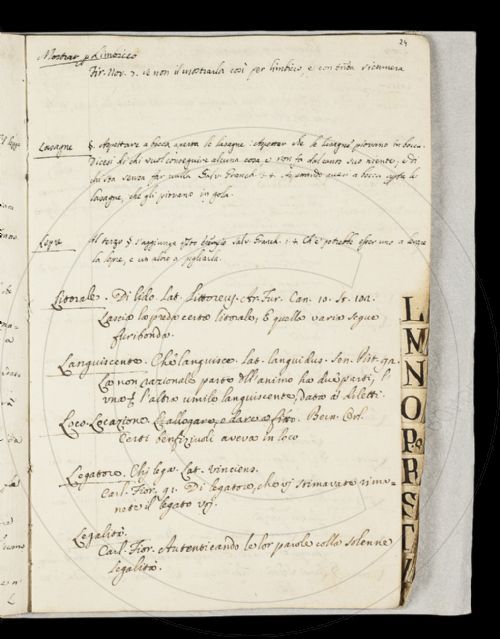 24
Mostrar p Limbicco
Fir. Nov. 7. se non il mostrarla così per limbicco, e con tutta
Lasagne §. Aspettare a bocca aperta le lasagne: Aspettar che le lasagne piovano in bocca.
Dicesi di chi vuol conseguire alcuna cosa, e non fa dal canto suo niente, e di
chi sta senza far nulla. Salv. Granch. Aspettando a bocca aperta le
lasagne, che gli piovano in gola.
Lepre Al terzo § s'aggiunga Salv. Granch. Ch'e' potrebbe esser uno a levar
la lepre, e un altro a pigliarla.
Littorale. Di lido. Lat. Littoreus. Ar. Fur. Can. 10. St. 101.
Lascia la preda certa litorale, E quella varia segue
furibonda.
Languiscente. Che languisce. Lat. languidus. Sen. Pist. 92.
La non razionale parte dell'animo ha due parti, l'
una l'altra umile languiscente, data ai diletti.
Loco. Locazione. L'allogare, e dare a fitto. Bern. Orl.
Certi benfiziudi aveva in loco
Legatore. Chi lega. Lat. vinciens.
Carl. Fior. 91. Di legatore, che vi stimavate rima-
nete il legato voi.
Legalità.
Carl. Fior. Autenticando le lor parole colla solenne
legalità.
L
M
N
O
P
R
S
T